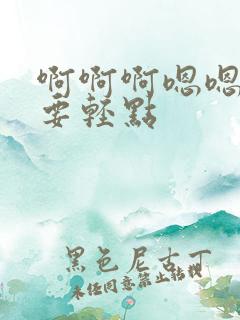 啊啊啊嗯嗯
要輕點
黑色尼古丁
未经同意禁止转载